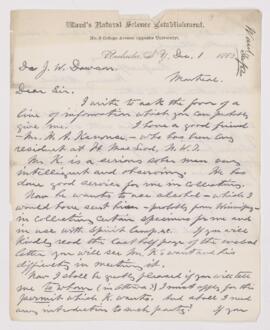 Ward's Natural Science Establishment.
No. 2 College Avenue opposite University.
Rochester, N.Y., Dec. 1 188
Dr J. W. Dawson
Montreal
Dear Sir.
I write to ask the favor of a
line of information which you can possibly
give me. I have a good friend
- Mr. R. N. Kanouse - who has been long
resident at Ft Mac Leod, N.W.T.
Mr. K is a serious sober man very
intelligent and observing. He has
done good service for me in collecting.
Now he wants to use alcohol - which I
would have sent him - probably from Winnipeg -
in collecting certain specimens for me and
in use with Spirit Lamp &c. If you will
kindly read the last half page of the
letter you will see Mr. K's want and his
difficulty in meeting it.
Now I shall be greatly pleased if you will tell
me to whom (in Ottawa?) I must apply for this
permit which K. wants. And should I need
any introduction to such party? If you